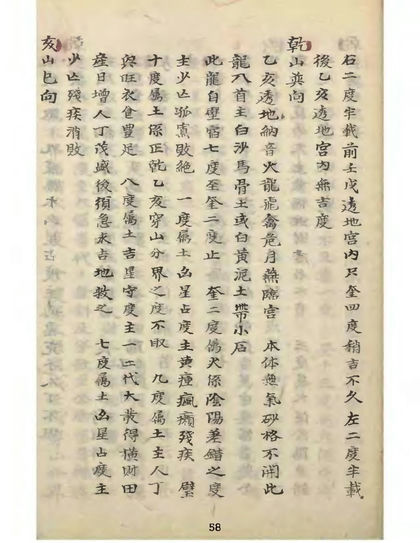 右二度半截前壬戌透地宮內只奎四度稍吉不久左二度半載
後乙亥透地宮內無吉度
乾山巽向
乙亥透地納音火龍虎禽危月燕臨宮 本体無氣砂格不開此
龍入首主白沙馬骨土或白黃泥土帶小石
此龍自壁宿七度至奎二度止 奎二度屬火係陰陽差錯之度
主少亡孤寡敗絕 一度屬土凶星占度主黃瘇瘋癩殘疾 壁
十度屬土係正乾乙亥穿山分界之度不取 九度屬土主人丁
興旺衣食豐足 八度屬土吉星守度主一二代大發得橫財田
產日增人丁茂盛後須急求吉地救之 七度屬土凶星占度主
少亡殘疾消敗
亥山巳向
58